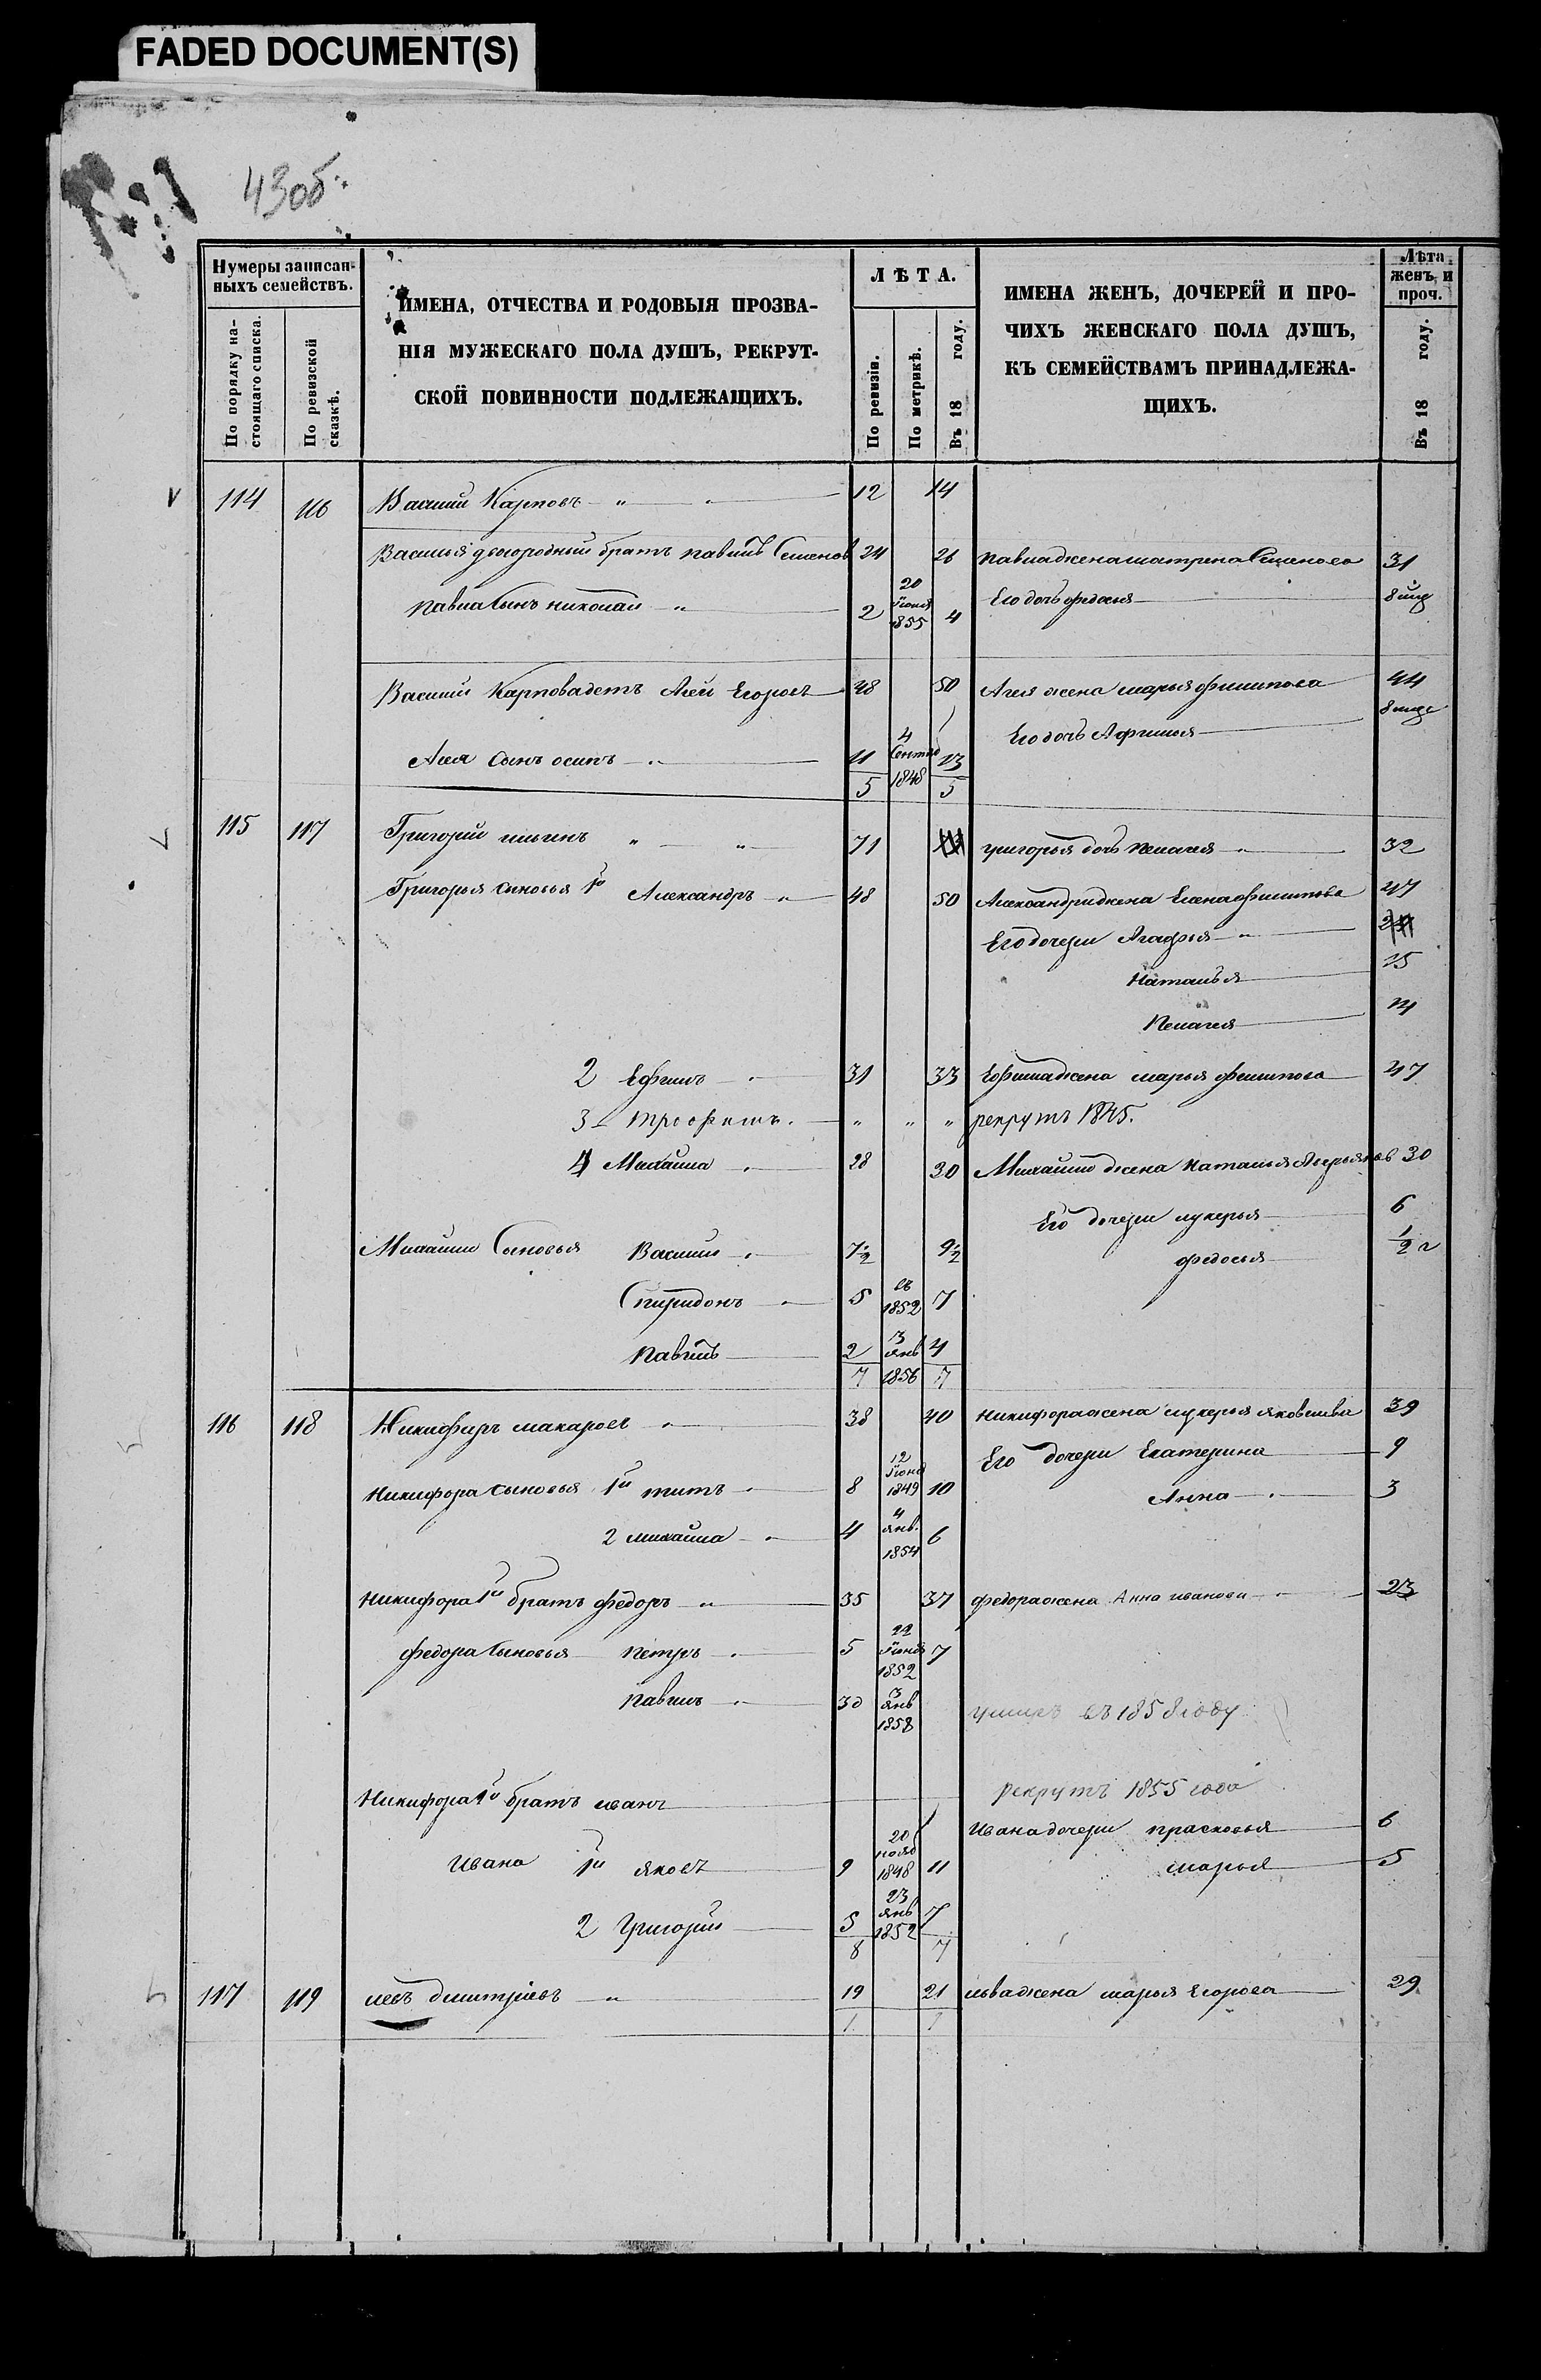 FADED DOCUMENT(S)
43об.
Нумеры записан-
ныхъ семействъ.
По порядку на-
стоящаго списка.
По ревизской
сказкѣ.
ИМЕНА, ОТЧЕСТВА И РОДОВЫЯ ПРОЗВА-
НІЯ МУЖЕСКАГО ПОЛА ДУШЪ, РЕКРУТ-
СКОЙ ПОВИННОСТИ ПОДЛЕЖАЩИХЪ.
ЛѢТА.
По ревизіи.
По метрикѣ.
Въ 18 году.
ИМЕНА ЖЕНЪ, ДОЧЕРЕЙ И ПРО-
ЧИХЪ ЖЕНСКАГО ПОЛА ДУШЪ,
КЪ СЕМЕЙСТВАМЪ ПРИНАДЛЕЖА-
ЩИХЪ.
Лѣта
женъ и
проч.
Въ 18 году.
114 116 Василий Карповъ 12 14
Василья двоюродный братъ павилъ Семенов 24 26 павла жена матрена Семенова 31
павла Сынъ николай 2 20 Іюня 1855 4 Его дочь федосья 8 мцс
Василий Карпова детъ Агей Егоровъ 48 50 Агея жена марья филипова 44
Его дочь Афимья 8 мцс
Агея Сынъ осипъ 11 4 Сентяб 1848 13
5 5
115 117 Григорий ильинъ 71 григорья дочь пелагея 32
Григорья Сыновья 1й Александръ 48 50 Александра жена Елена филипова 47
Его дочери Агафья
наталья 15
пелагея 14
2 Ефимъ 31 33 Ефима жена марья филипова 47
3 трофимъ " " " рекрутъ 1845.
4 Михайла 28 30 Михайлы жена наталья Аверьянов 30
Его дочери лукерья 6
Михайлы Сыновья Василий 7½ 9½ федосья ½ г
Спиридонъ 5 въ 1852 7
павилъ 2 3 янв 1856 4
7 7
116 118 Никифиръ макаровъ 38 40 никифора жена лукерья яковлива 39
Его дочери Екатерина 9
никифора Сыновья 1й титъ 8 12 Іюня 1849 10 Анна 3
2 михайла 4 4 янв. 1854 6
никифора 1й братъ федоръ 35 37 федора жена Анна иванова 23
федора Сыновья петръ 5 22 Іюня 1852 7
павилъ 30 3 янв 1858 умиръ въ 1858 году
никифора 1й братъ иванъ рекрутъ 1855 года
Ивана дочери прасковья 6
Ивана 1й яковъ 9 20 нояб 1848 11 марья 5
2 Григорий 5 23 янв 1852 7
8 7
117 119 левъ дмитріевъ 19 21 льва жена марья Егорова 29
1 1